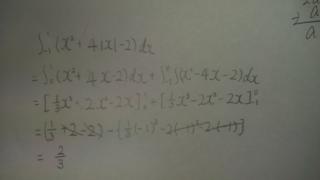 ∫₋₁¹ (x² + 4|x| - 2) dx
= ∫₀¹ (x² + 4x - 2) dx + ∫₋₁⁰ (x² - 4x - 2) dx
= [⅓x³ + 2x² - 2x]₀¹ + [⅓x³ - 2x² - 2x]₋₁⁰
= (⅓ + 2 - 2) - {⅓(-1)³ - 2(-1)² - 2(-1)}
= 2/3